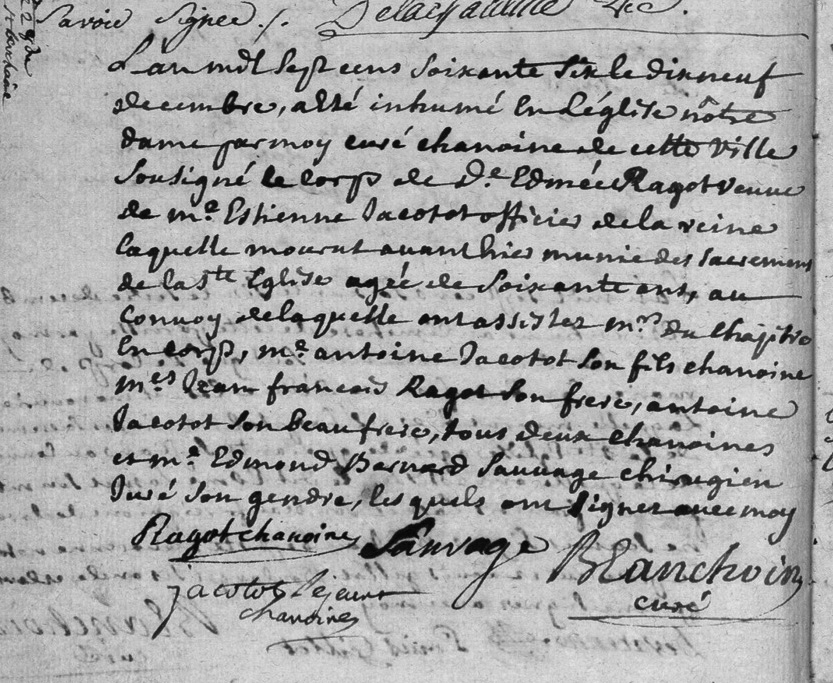 savoir signer ./.
L'an mil sept cens soixante six le dixneuf
decembre, a esté inhumé en l'église nôtre
dame par moy curé chanoine de cette ville
sousigné le corps de d.e Edmée Ragot veuve
de m.e Estienne Jacotot officier de la reine
laquelle mourut avant hier munie des sacremens
de la s.te Eglise agée de soixante ans, au
convoy de laquelle ont assistez m.rs du chapitre
en corps, m.e antoine Jacotot son fils chanoine
m.es Jean francois Ragot son frere, antoine
Jacotot son beau frere, tous deux chanoines
et m.e Edmond Bernard Sauvage chirugien
Juré son gendre, les quels ont signer avec moy
Ragot chanoine Sauvage Blanchoin
curé
jacotot Lejeune
chanoine